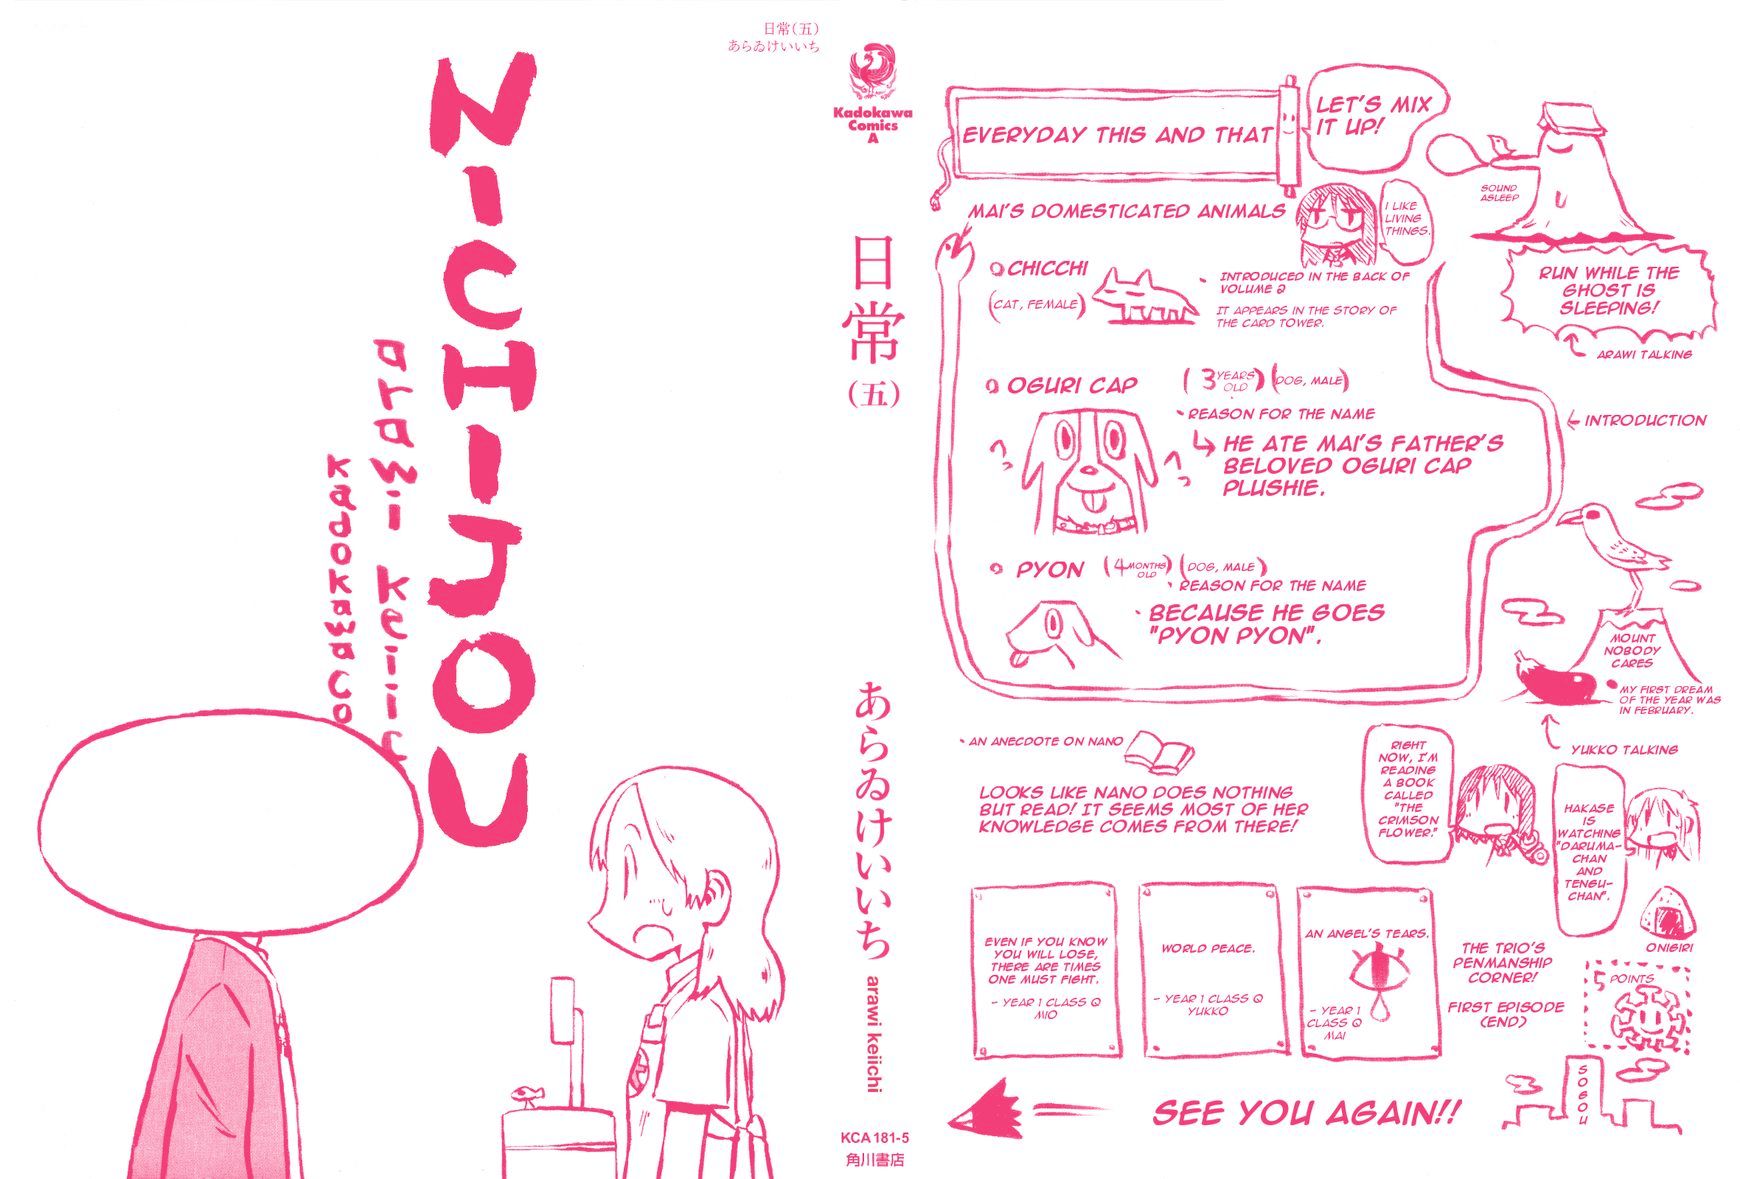 NICHIJOU
arawi keiic
kadokawaco
日常(五)
あらゐけいいち
Kadokawa
Comics
A
日常
(五)
あらゐけいいち
arawi keiichi
KCA 181-5
角川書店
EVERYDAY THIS AND THAT
LET'S MIX
IT UP!
SOUND
ASLEEP
RUN WHILE THE
GHOST IS
SLEEPING!
ARAWI TALKING
MAI'S DOMESTICATED ANIMALS
I LIKE
LIVING
THINGS.
CHICCHI
(CAT, FEMALE)
INTRODUCED IN THE BACK OF
VOLUME 2
IT APPEARS IN THE STORY OF
THE CARD TOWER.
OGURI CAP
(3 YEARS
OLD)
(DOG, MALE)
REASON FOR THE NAME
HE ATE MAI'S FATHER'S
BELOVED OGURI CAP
PLUSHIE.
INTRODUCTION
PYON
(4 MONTHS
OLD)
(DOG, MALE)
REASON FOR THE NAME
BECAUSE HE GOES
"PYON PYON".
MOUNT
NOBODY
CARES
MY FIRST DREAM
OF THE YEAR WAS
IN FEBRUARY.
YUKKO TALKING
AN ANECDOTE ON NANO
LOOKS LIKE NANO DOES NOTHING
BUT READ! IT SEEMS MOST OF HER
KNOWLEDGE COMES FROM THERE!
RIGHT
NOW, I'M
READING
A BOOK
CALLED
"THE
CRIMSON
FLOWER."
HAKASE
IS
WATCHING
"DARUMA-
CHAN
AND
TENGU-
CHAN".
ONIGIRI
EVEN IF YOU KNOW
YOU WILL LOSE,
THERE ARE TIMES
ONE MUST FIGHT.
- YEAR 1 CLASS Q
MIO
WORLD PEACE.
- YEAR 1 CLASS Q
YUKKO
AN ANGEL'S TEARS.
- YEAR 1
CLASS Q
MAI
THE TRIO'S
PENMANSHIP
CORNER!
FIRST EPISODE
(END)
5 POINTS
SOGOU
SEE YOU AGAIN!!